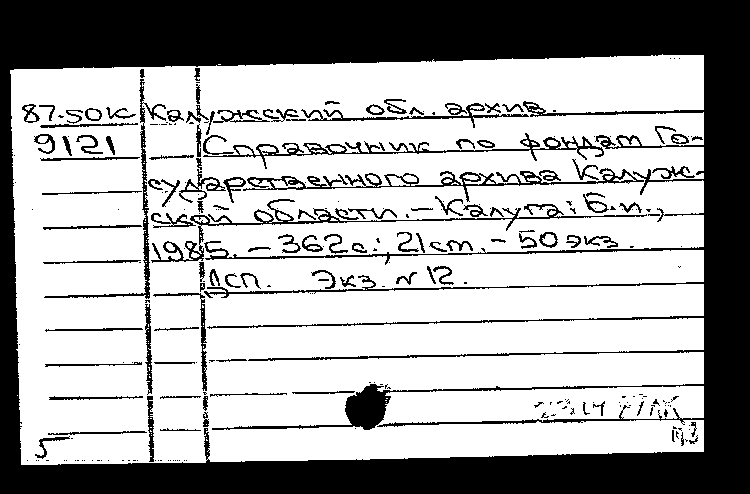 87-50к Калужский обл. архив.
9121 Справочник по фондам Го-
сударственного архива Калуж-
ской области. - Калуга: Б.и.,
1985. - 362 с.; 21 ст. - 50 экз.
Дсп. Экз. № 12.
5